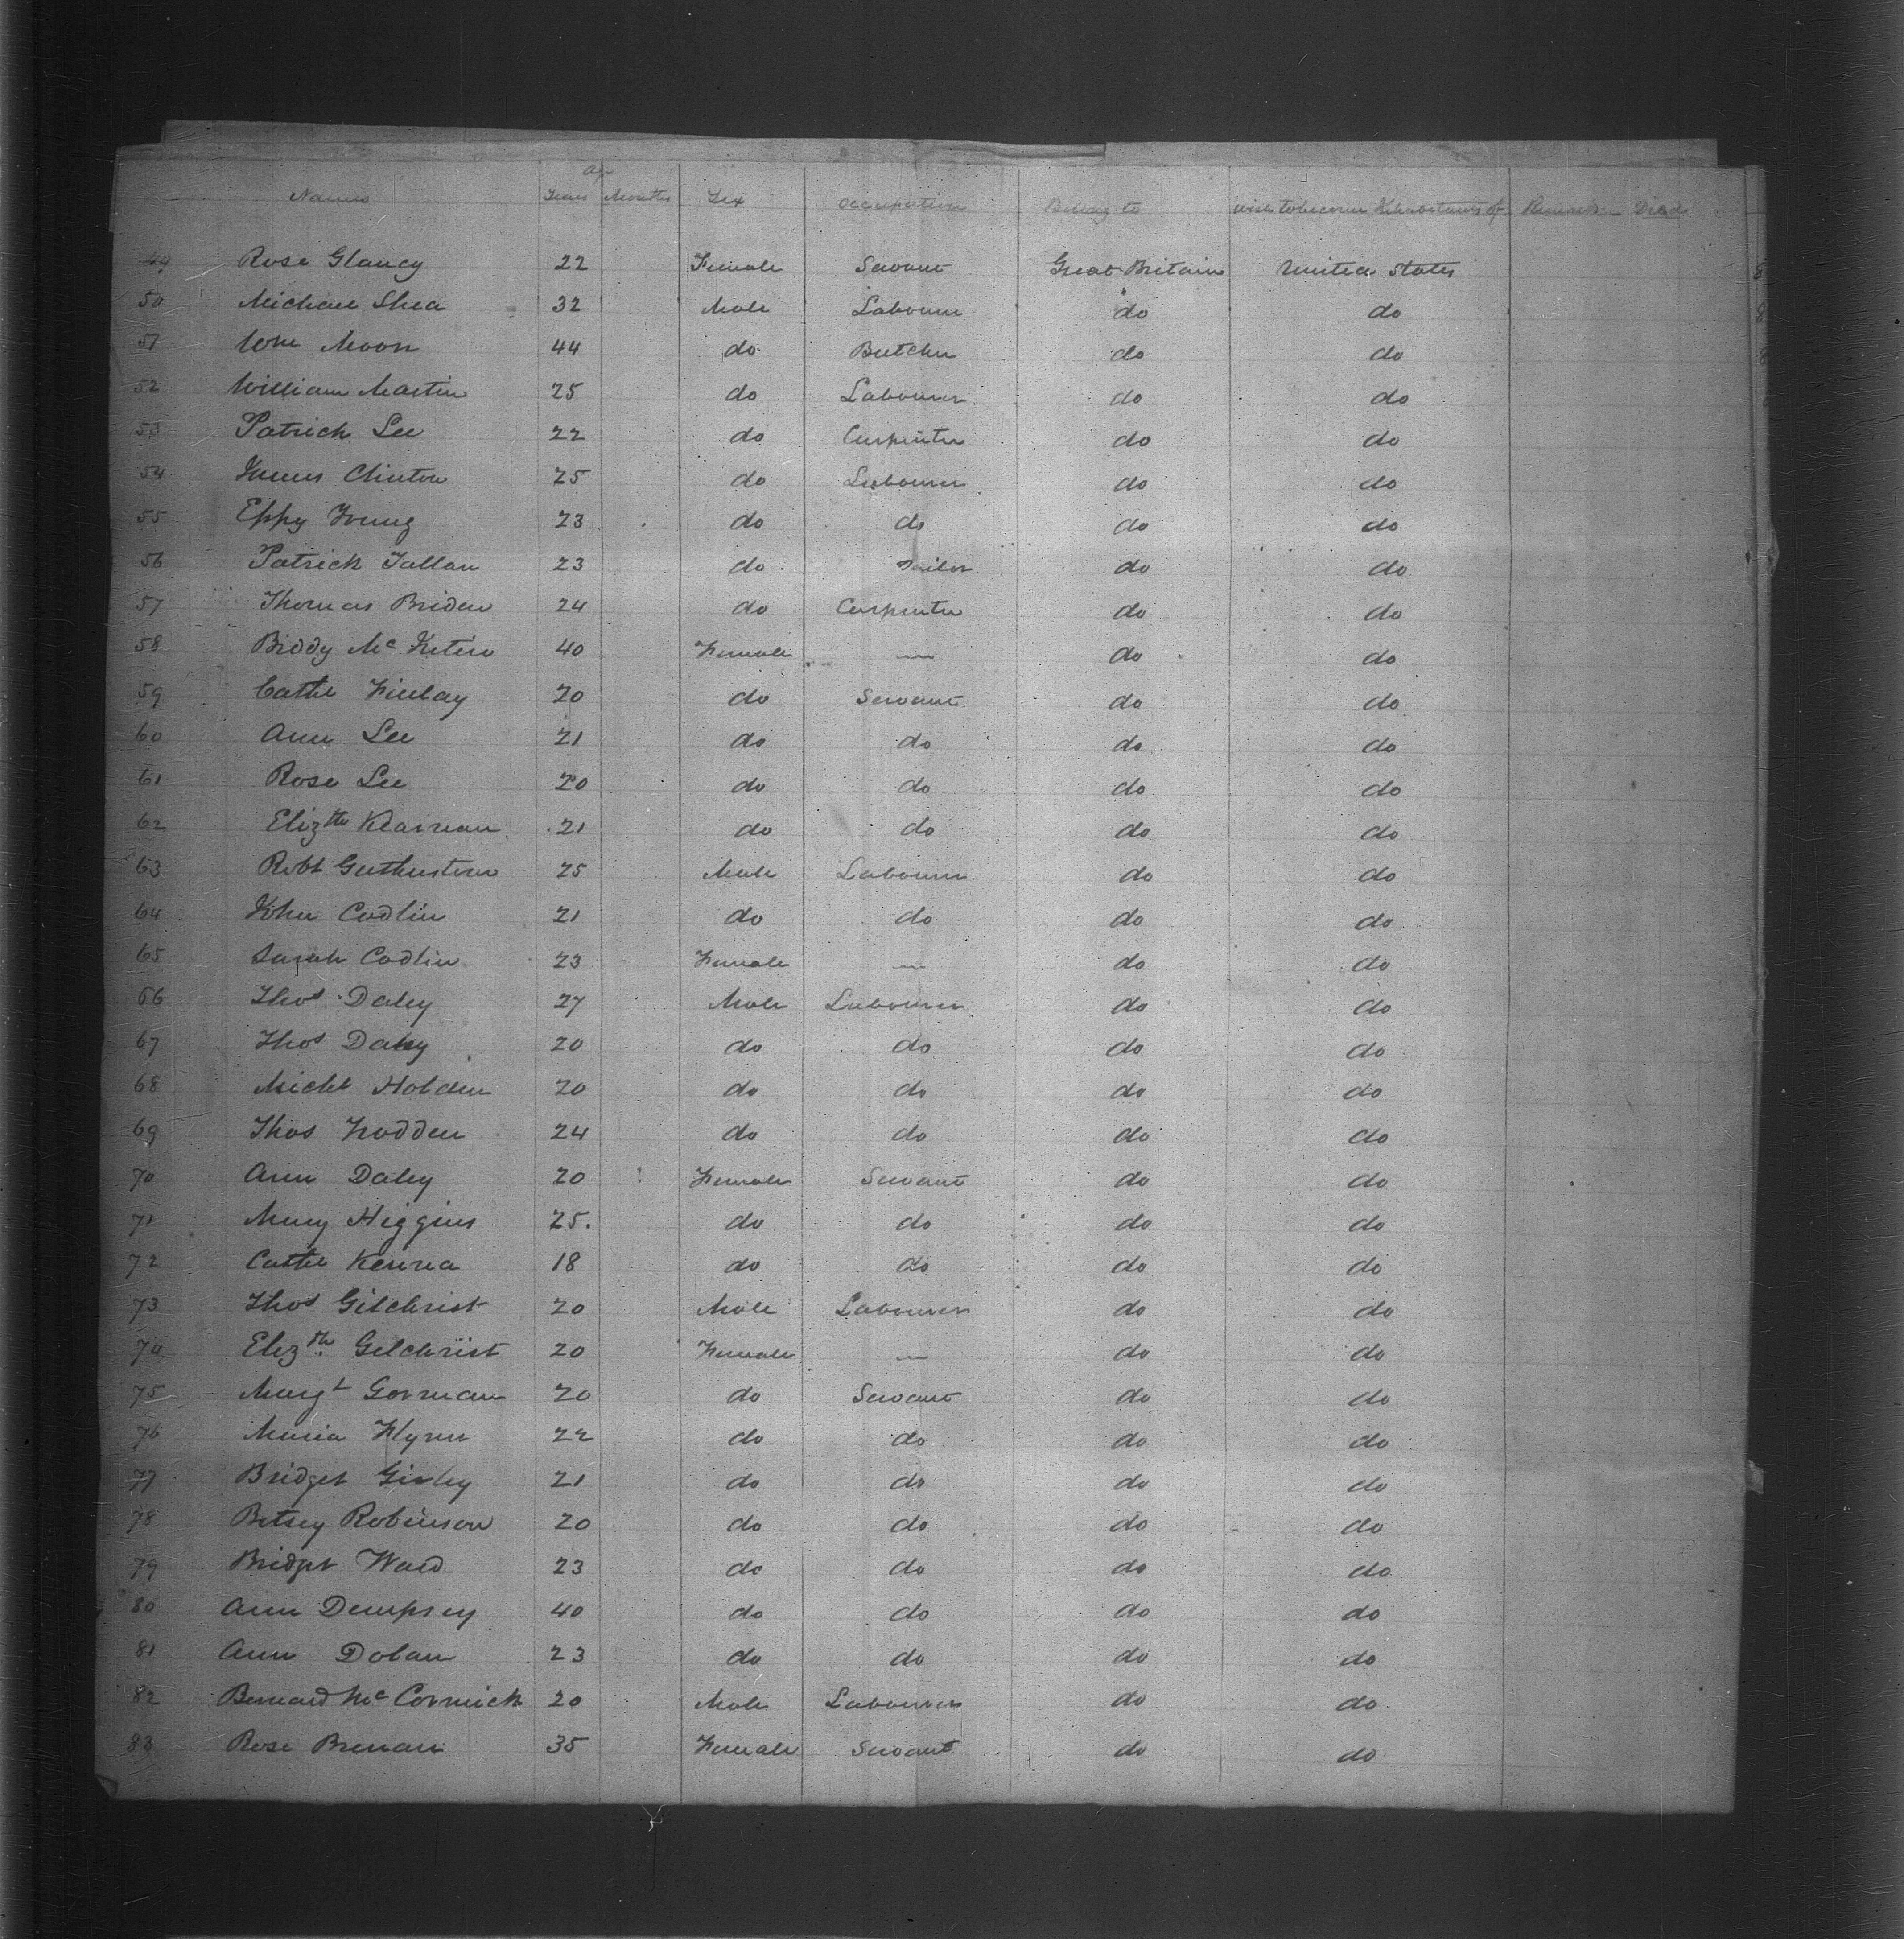 Age
Names Years Months Sex Occupation Belong to wish to become Inhabitants of Remarks Died
49 Rose Glancy 22 Female Servant Great Britain United States
50 Michael Shea 32 Male Labourer do do
51 Wm Moon 44 do Butcher do do
52 William Martin 25 do Labourer do do
53 Patrick Lee 22 do Carpenter do do
54 James Clinton 25 do Labourer do do
55 Eppy Young 23 do do do do
56 Patrick Tallan 23 do Tailor do do
57 Thomas Briden 24 do Carpenter do do
58 Biddy Mc 40 Female — do do
59 Cathe Finlay 20 do Servant do do
60 Ann Lee 21 do do do do
61 Rose Lee 20 do do do do
62 Elizth Kearnan 21 do do do do
63 Robt 25 Male Labourer do do
64 John Codlin 21 do do do do
65 Sarah Codlin 23 Female — do do
66 Thos Daley 27 Male Labourer do do
67 Thos Daley 20 do do do do
68 Michl Holden 20 do do do do
69 Thos 24 do do do do
70 Ann Daley 20 Female Servant do do
71 Mary Higgins 25. do do do do
72 Cathe Kenna 18 do do do do
73 Thos Gilchrist 20 Male Labourer do do
74 Elizth. Gilchrist 20 Female — do do
75 Margt Gorman 20 do Servant do do
76 Maria Flynn 22 do do do do
77 Bridget 21 do do do do
78 Betsey Robinson 20 do do do do
79 Bridget Ward 23 do do do do
80 Ann Dempsey 40 do do do do
81 Ann Dolan 23 do do do do
82 Bernard Mc Cormick 20 Male Labourer do do
83 Rose Brenan 35 Female Servant do do